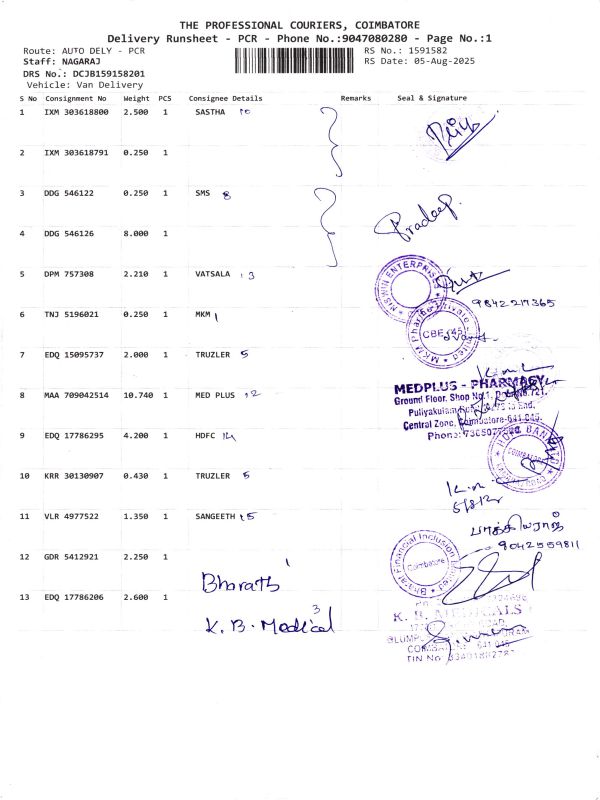 THE PROFESSIONAL COURIERS, COIMBATORE
Delivery Runsheet - PCR - Phone No.:9047080280 - Page No.:1
Route: AUTO DELY - PCR RS No.: 1591582
Staff: NAGARAJ RS Date: 05-Aug-2025
DRS No.: DCJB159158201
Vehicle: Van Delivery
S No Consignment No Weight PCS Consignee Details Remarks Seal & Signature
1 IXM 303618800 2.500 1 SASTHA 10
2 IXM 303618791 0.250 1
3 DDG 546122 0.250 1 SMS 8
Pradeep.
4 DDG 546126 8.000 1
5 DPM 757308 2.210 1 VATSALA 13
ENTERPRISE
9842217365
6 TNJ 5196021 0.250 1 MKM 1
MKM Pharma Private Limited
CBE-45
7 EDQ 15095737 2.000 1 TRUZLER 5
8 MAA 709042514 10.740 1 MED PLUS 12
MEDPLUS - PHARMACY
Ground Floor, Shop No.1,
Puliyakulam
Central Zone, Coimbatore-641 045.
9 EDQ 17786295 4.200 1 HDFC 14
HDFC BANK
COIMBATORE
10 KRR 30130907 0.430 1 TRUZLER 5
11 VLR 4977522 1.350 1 SANGEETH 15
9042559811
12 GDR 5412921 2.250 1 Bharath 1
Bharat Financial Inclusion Limited
Coimbatore
13 EDQ 17786206 2.600 1 K.B. Medical 3
K. B. MEDICALS